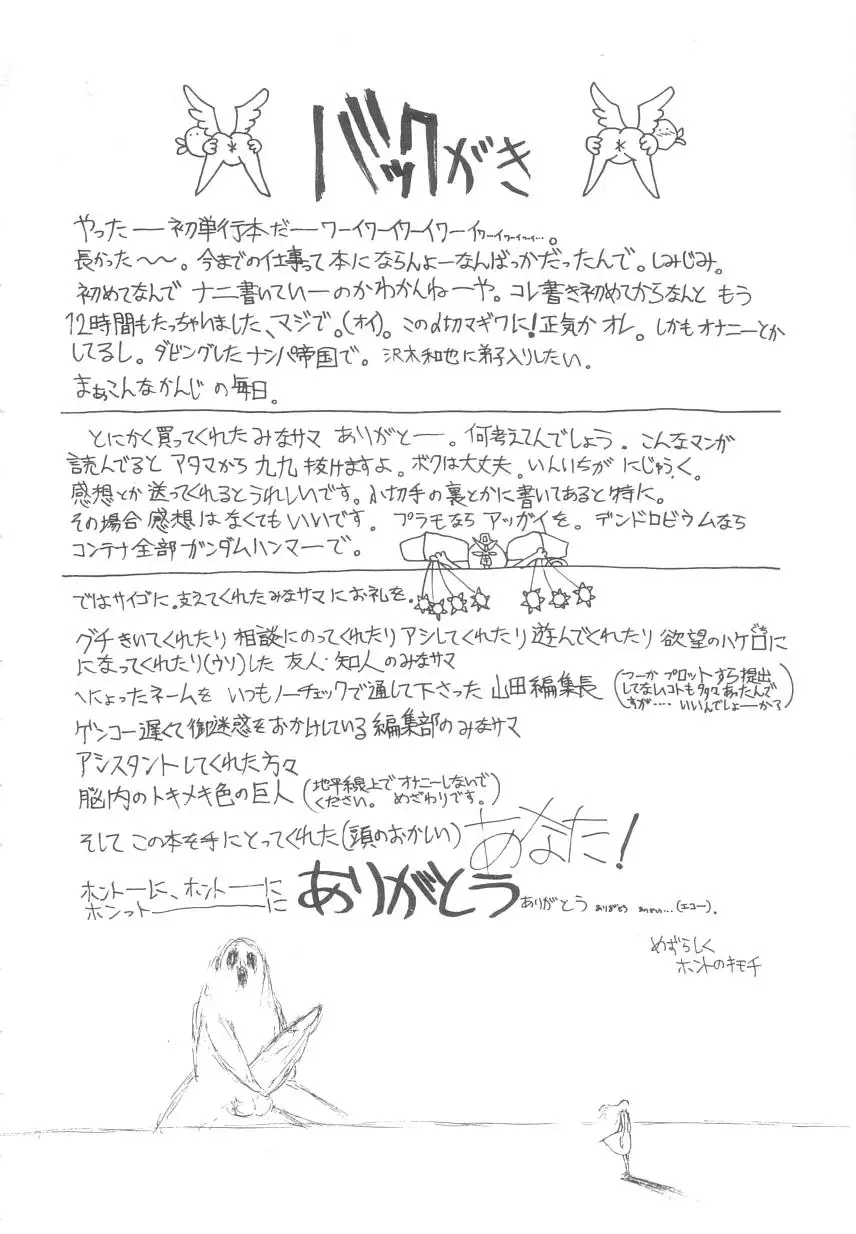 バックがき
やったー初単行本だーワーイワーイワーイワーイワーイワーイワーイ…。
長かった〜〜。今までの仕事って本にならんよーなんばっかだったんで。しみじみ。
初めてなんで ナニ書いていーのかわかんねーや。コレ書き初めてからなんと もう
12時間もたっちゃいました、マジで。(オイ)。この〆切マギワに!正気か オレ。しかもオナニーとか
してるし。ダビングしたナンパ帝国で。沢木和也に弟子入りしたい。
まぁこんなかんじの毎日。
とにかく買ってくれたみなサマ ありがとー。何考えてんでしょう。こんなマンガ
読んでるとアタマから九九抜けますよ。ボクは大丈夫。いんいちがにじゅうく。
感想とか送ってくれるとうれしいです。小切手の裏とかに書いてあると特に。
その場合感想はなくてもいいです。プラモならアッガイを。デンドロビウムなら
コンテナ全部ガンダムハンマーで。
ではサイゴに。支えてくれたみなサマにお礼を。
グチきいてくれたり相談にのってくれたりアシしてくれたり遊んでくれたり欲望のハケ口(ぐち)に
になってくれたり(ウソ)した 友人・知人のみなサマ
へにょったネームを いつもノーチェックで通して下さった 山田編集長
(つーか プロットすら提出
してないコトも多々あったんで
すが‥‥いいんでしょーか?)
ゲンコー遅くて御迷惑をおかけしている編集部のみなサマ
アシスタントしてくれた方々
脳内のトキメキ色の巨人
(地平線上でオナニーしないで
ください。 めざわりです。)
そして この本を手にとってくれた(頭のおかしい) あなた!
ホントーに、ホントーに
ホンットーーーに ありがとう ありがとう ありがとう ありがとう…(エコー)。
めずらしく
ホントのキモチ